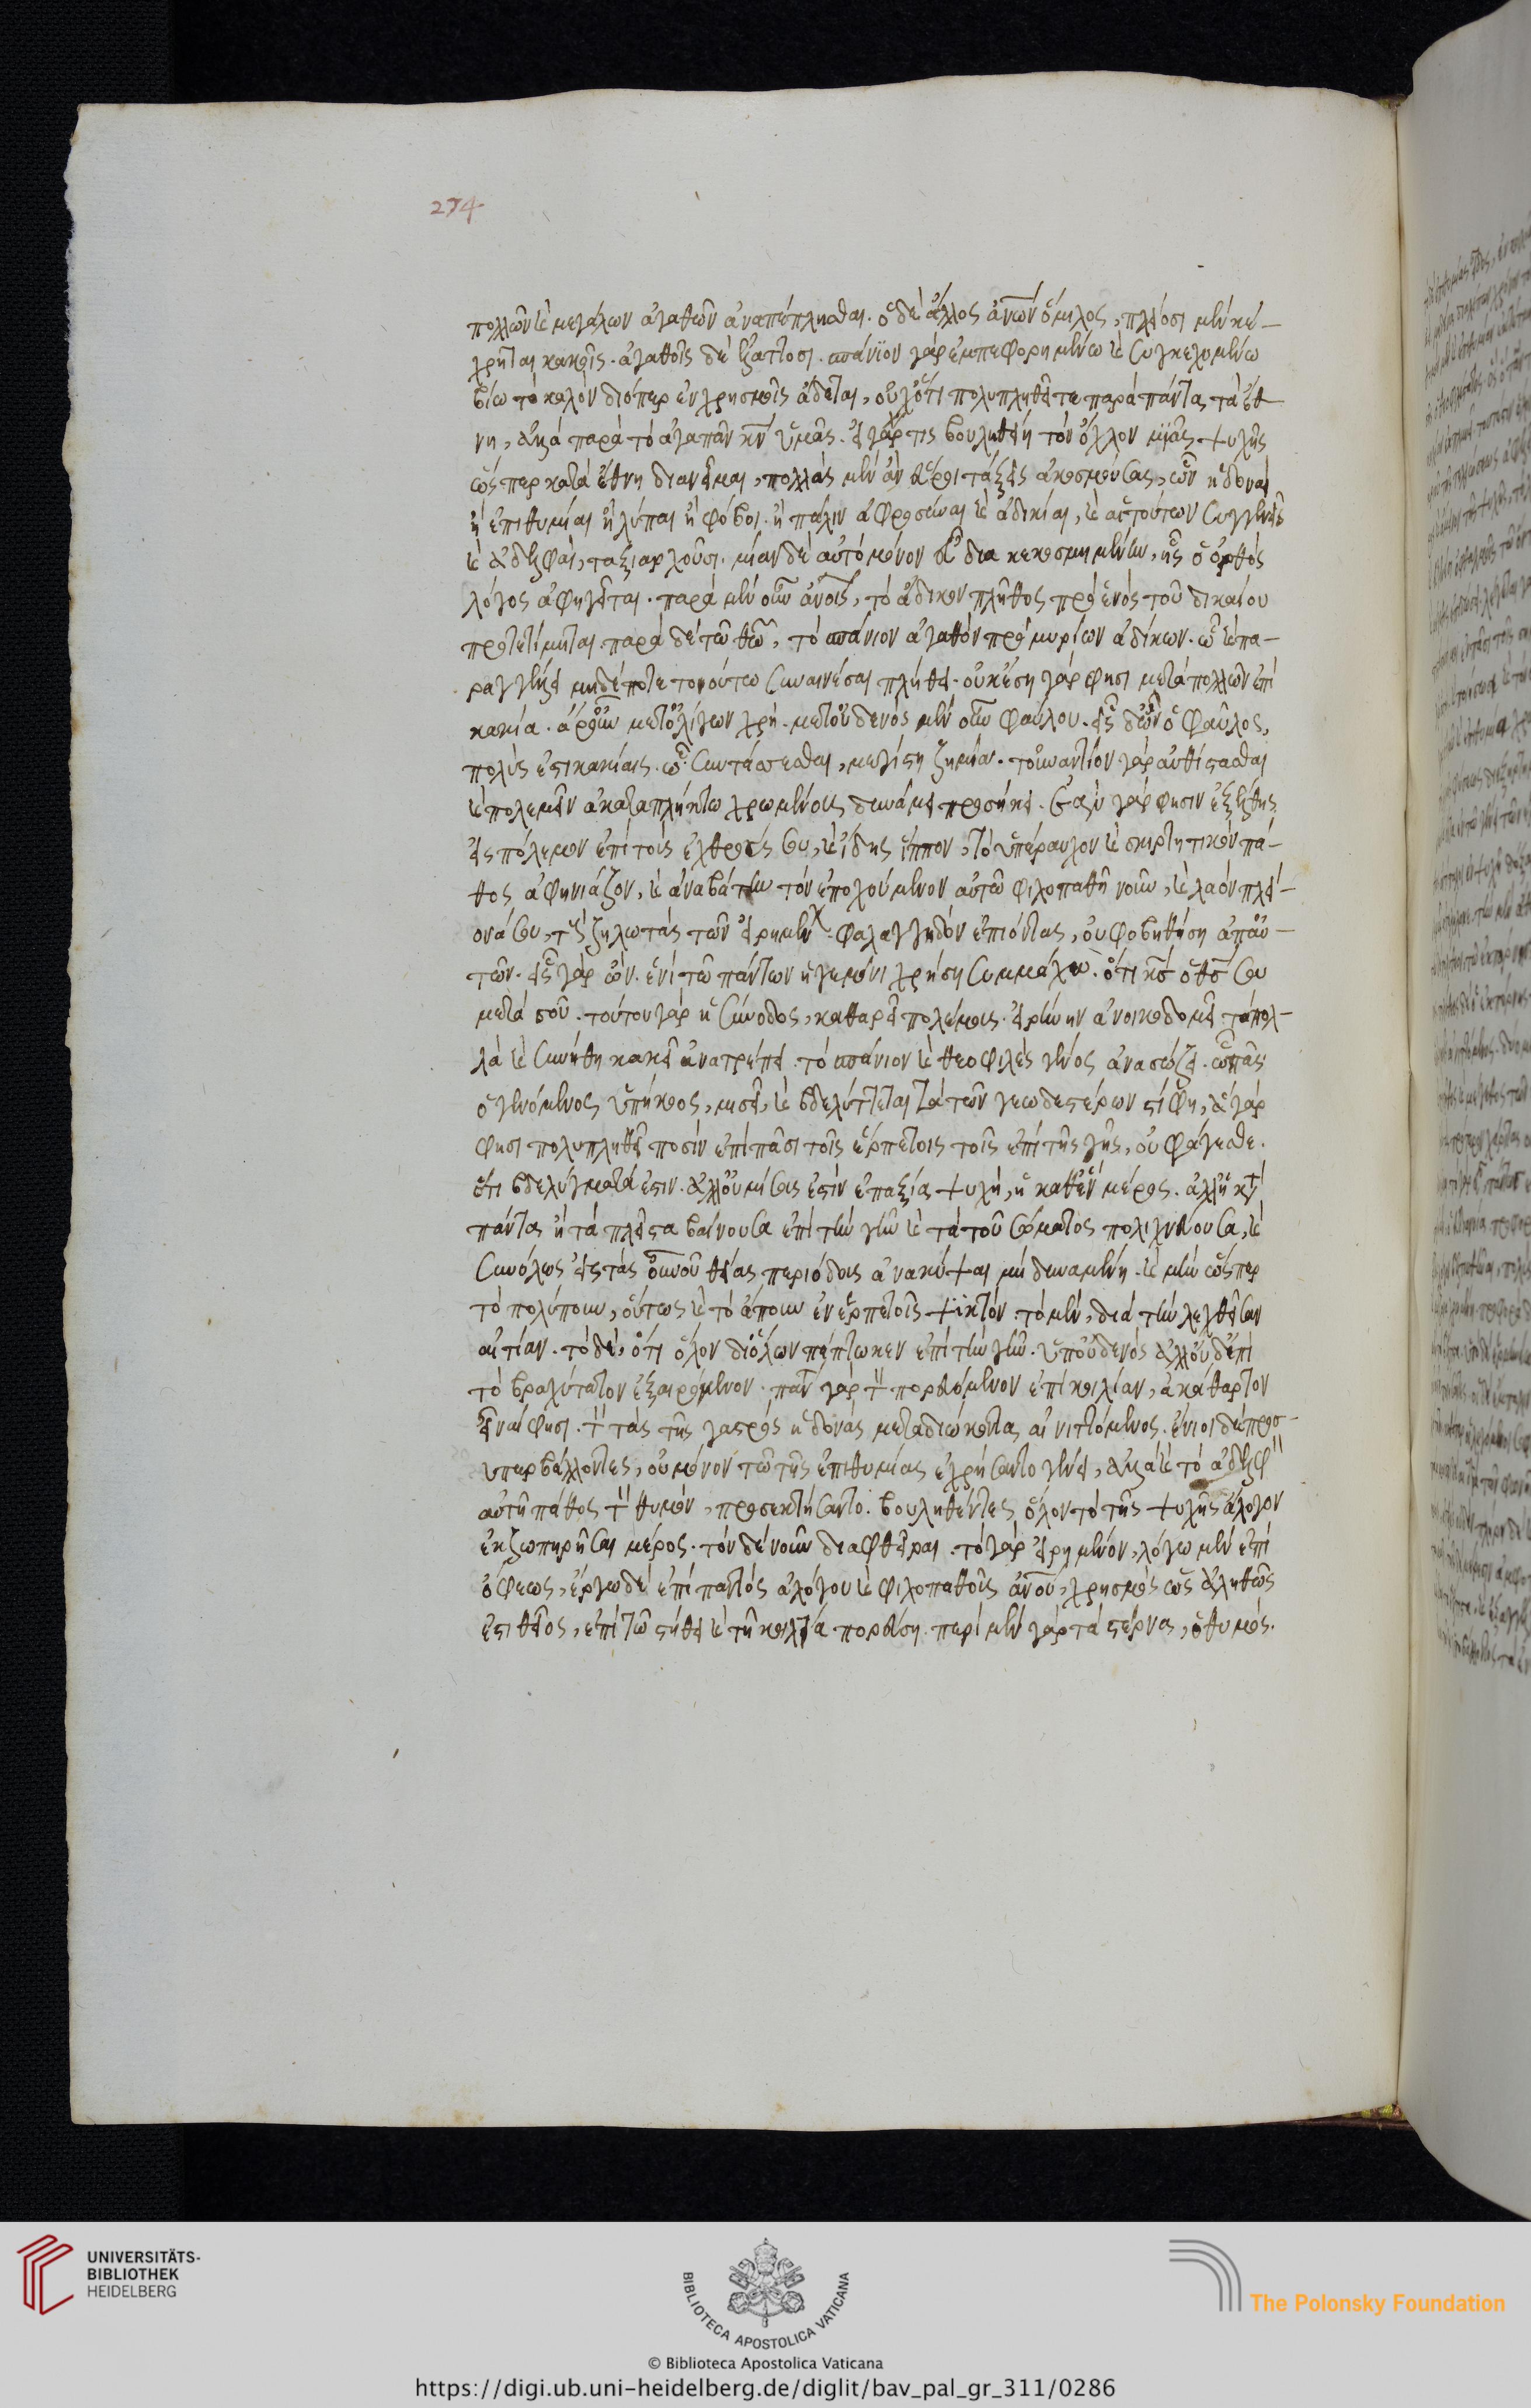 274
πολλῶν καὶ μεγάλων ἀγαθῶν ἀναπέπλησθαι. ὁ δὲ ἄλλος ἀνων ὅμιλος, πλείοσι μὲν κέ-
χρηται κακοῖς. ἀγαθοῖς δὲ ἐλάττοσι. σπάνιον γὰρ ἐμπεφορημένω καὶ συγκεχυμένω
βίω τὸ καλὸν διόπερ ἐν χρησμοῖς ἄδεται, οὐχ ὅτι πολυπληθεῖτε παρὰ πάντα τὰ ἔθ
νη, ἀλλὰ παρὰ τὸ ἀγαπᾶν κν ὑμᾶς. εἰ γάρ τις βουληθείη τὸν ὄχλον μιᾶς ψυχῆς
ὥσπερ κατὰ ἔθνη διανεῖμαι, πολλὰς μὲν ἂν εὕροι τάξεις ἀκοσμούσας, ὧν ἡδοναὶ
ἢ ἐπιθυμίαι ἢ λύπαι ἢ φόβοι. ἢ πάλιν ἀφροσύναι καὶ ἀδικίαι, καὶ αἱ τούτων συγγενεῖς
καὶ ἀδελφαὶ, ταξιαρχοῦσι. μίαν δὲ αὐτὸ μόνον εὖ διακεκοσμημένην, ἧς ὁ ὀρθὸς
λόγος ἀφηγεῖται. παρὰ μὲν οὖν ἀνοις, τὸ ἄδικον πλῆθος πρὸ ἑνὸς τοῦ δικαίου
προτετίμηται. παρὰ δὲ τῶ θῶ, τὸ σπάνιον ἀγαθὸν πρὸ μυρίων ἀδίκων. ὧ καὶ πα-
ραγγέλλει μηδέποτε τοιούτω συναινέσαι πλήθει. οὐκ ἔση γάρ φησι μετὰ πολλῶν ἐπὶ
κακία. ἆρ' οὖν μετ' ὀλίγων χρή. μετ' οὐδενὸς μὲν οὖν φαύλου. εἷς δ' ὢν ὁ φαῦλος,
πολὺς ἐστι κακίαις. ὧ συντάττεσθαι, μεγίστη ζημία. τοὐναντίον γὰρ ἀνθίστασθαι
καὶ πολεμεῖν ἀκαταπλήκτω χρωμένους δυνάμει προσήκει. ἐὰν γάρ φησιν ἐξέλθης
εἰς πόλεμον ἐπὶ τοὺς ἐχθρούς σου, καὶ ἴδης ἵππον, τὸ ὑπέραυχον καὶ σκιρτητικὸν πά-
θος ἀφηνιάζον, καὶ ἀναβάτην τὸν ἐποχούμενον αὐτῶ φιλοπαθῆ νοῦν, καὶ λαὸν πλεί-
ονά σου, τοὺς ζηλωτὰς τῶν εἰρημένων φαλαγγηδὸν ἐπιόντας, οὐ φοβηθήση ἀπ' αὐ-
τῶν. εἷς γὰρ ὢν. ἑνὶ τῶ πάντων ἡγεμόνι χρήση συμμάχω. ὅτι κς ὁ θς σου
μετὰ σοῦ. τούτου γὰρ ἡ σύνοδος, καθαιρεῖ πολέμους. εἰρήνην ἀνοικοδομεῖ τὰ πολ-
λὰ καὶ συνήθη κακὰ ἀνατρέπει. τὸ σπάνιον καὶ θεοφιλὲς γένος ἀνασώζει. ὧ πᾶς
ὁ γενόμενος ὑπήκοος, μισεῖ, καὶ βδελύττεται τὰ τῶν γεωδεστέρων στίφη, ἃ γάρ
φησι πολυπληθεῖ ποσὶν ἐπὶ πᾶσι τοῖς ἑρπετοῖς τοῖς ἐπὶ τῆς γῆς, οὐ φάγεσθε.
ὅτι βδελύγματά ἐστιν. ἀλλ' οὐ μίσους ἐστὶν ἐπαξία ψυχή, ἡ καθ' ἓν μέρος. ἀλλ' ἡ κατὰ
πάντα ἢ τὰ πλεῖστα βαίνουσα ἐπὶ τὴν γῆν καὶ τὰ τοῦ σώματος πολιχνεύουσα, καὶ
συνόλως εἰς τὰς οὐνοῦ θείας περιόδους ἀνακύψαι μὴ δυναμένη. καὶ μὴν ὥσπερ
τὸ πολύπουν, οὕτως καὶ τὸ ἄπουν ἐν ἑρπετοῖς ψεκτόν. τὸ μὲν, διὰ τὴν λεχθεῖσαν
αἰτίαν. τὸ δὲ, ὅτι ὅλον δι' ὅλων πέπτωκεν ἐπὶ τὴν γῆν. ὑπ' οὐδενὸς ἀλλ' οὐδ' ἐπὶ
τὸ βραχύτατον ἐξαιρόμενον. πάντα γὰρ τὸν πορευόμενον ἐπὶ κοιλίαν, ἀκάθαρτον
εἶναί φησι. τὸν τὰς τῆς γαστρὸς ἡδονὰς μεταδιώκοντα αἰνιττόμενος. ἔνιοι δὲ προσ-
υπερβάλλοντες, οὐ μόνον τῶ τῆς ἐπιθυμίας ἐχρήσαντο γένει, ἀλλὰ καὶ τὸ ἀδελφὸν
αὐτῆ πάθος τὸν θυμὸν, προσεκτήσαντο. βουληθέντες ὅλον τὸ τῆς ψυχῆς ἄλογον
ἐκζωπυρῆσαι μέρος. τὸν δὲ νοῦν διαφθεῖραι. τὸ γὰρ εἰρημένον, λόγω μὲν ἐπὶ
ὄφεως, ἔργω δὲ ἐπὶ παντὸς ἀλόγου καὶ φιλοπαθοῦς ἀνου, χρησμὸς ὡς ἀληθῶς
ἐστι θεῖος, ἐπὶ τῶ στήθει καὶ τῆ κοιλία πορεύση. περὶ μὲν γὰρ τὰ στέρνα, ὁ θυμός.
UNIVERSITÄTS-
BIBLIOTHEK
HEIDELBERG
BIBLIOTECA APOSTOLICA VATICANA
The Polonsky Foundation
© Biblioteca Apostolica Vaticana
https://digi.ub.uni-heidelberg.de/diglit/bav_pal_gr_311/0286